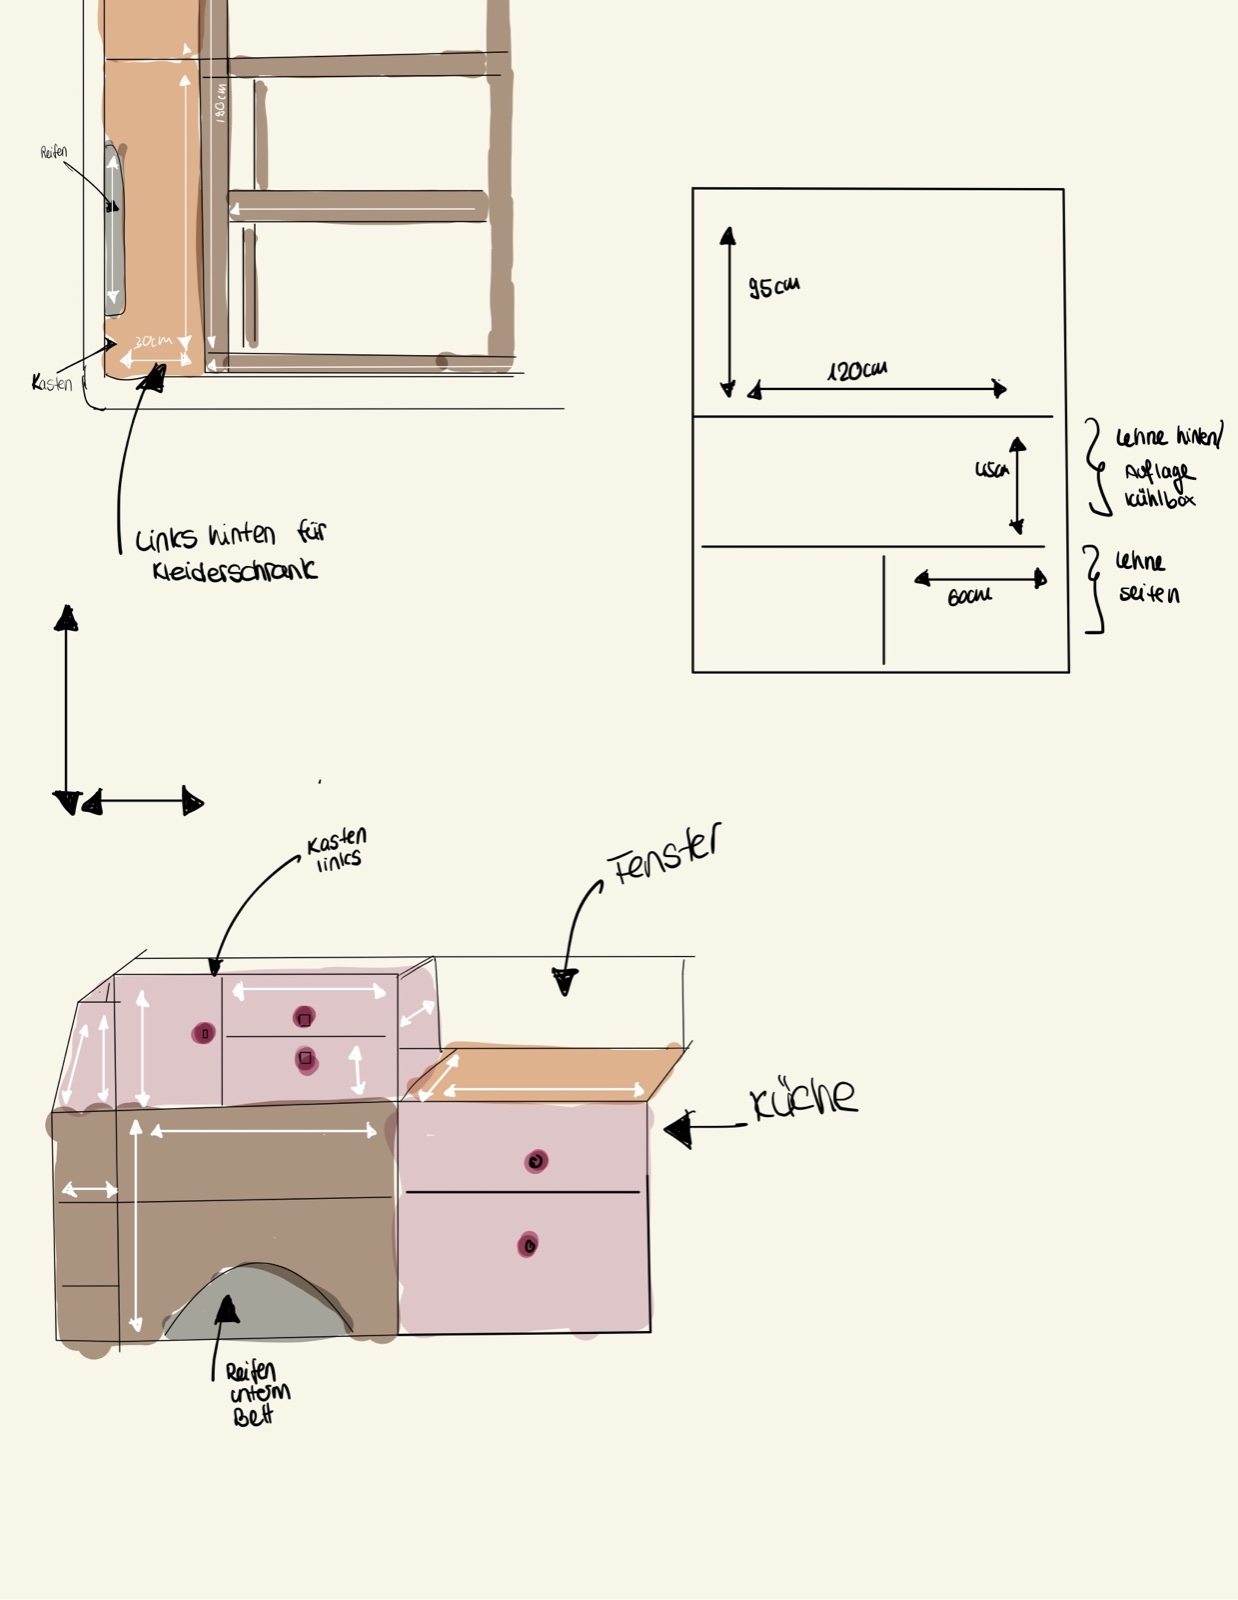 180cm
Reifen
30cm
Kasten
Links hinten für
Kleiderschrank
95cm
120cm
45cm
Lehne hinten/
Auflage
Kühlbox
60cm
Lehne
seiten
Kasten
links
Fenster
Küche
Reifen
unterm
Bett